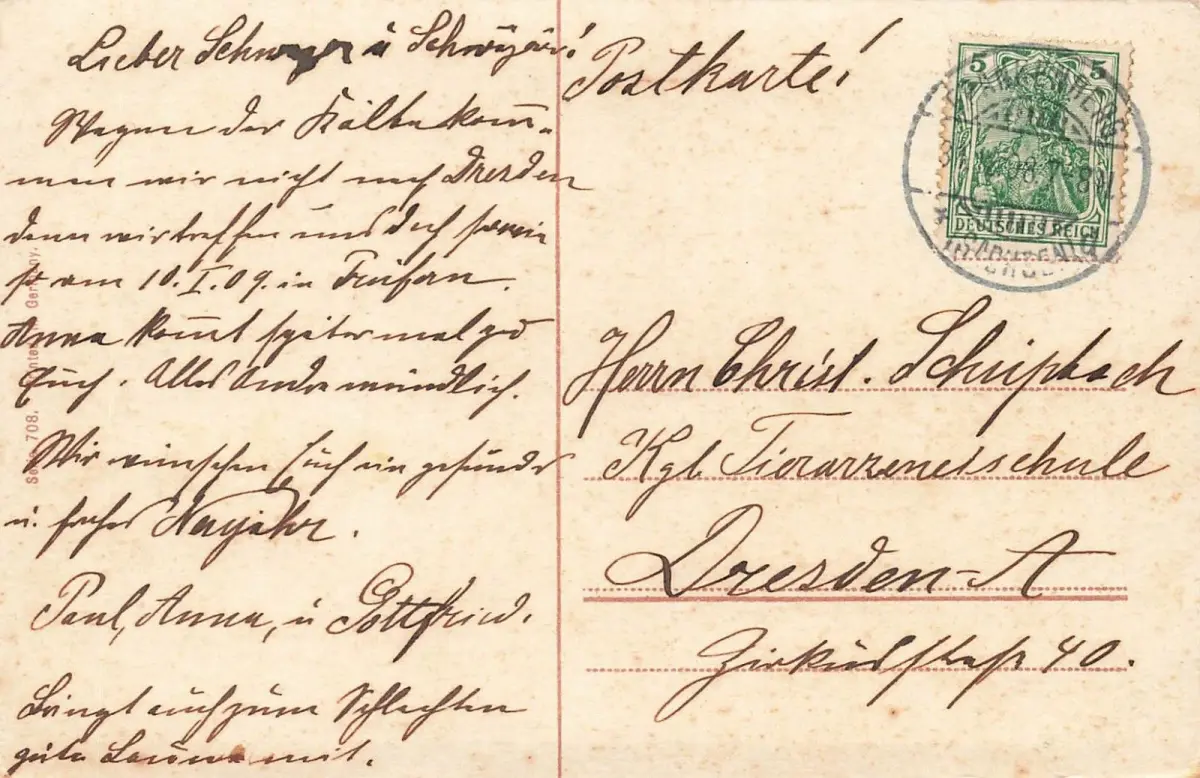 Lieber Schwager u Schwägerin!
Wegen der Kälte kom̅-
men wir nicht nach Dresden
denn wir treffen uns doch sowie
so am 10. I. 09. in
Anna kom̅t später mal zu
Euch. Alles Andre mündlich.
Wir wünschen Euch ein gesundes
u. frohes Neujahr.
Paul, Anna, u Gottfried.
Bringt auch zum Schlachten
gute Laune mit.
Serie 708. Germany.
Postkarte!
5 5
DEUTSCHES REICH
08. 7-8N
* (SACHSEN)
Herrn Christ. Scheipbach
Kgl Tierarzeneischule
Dresden-A
Zirkusstraße 40.